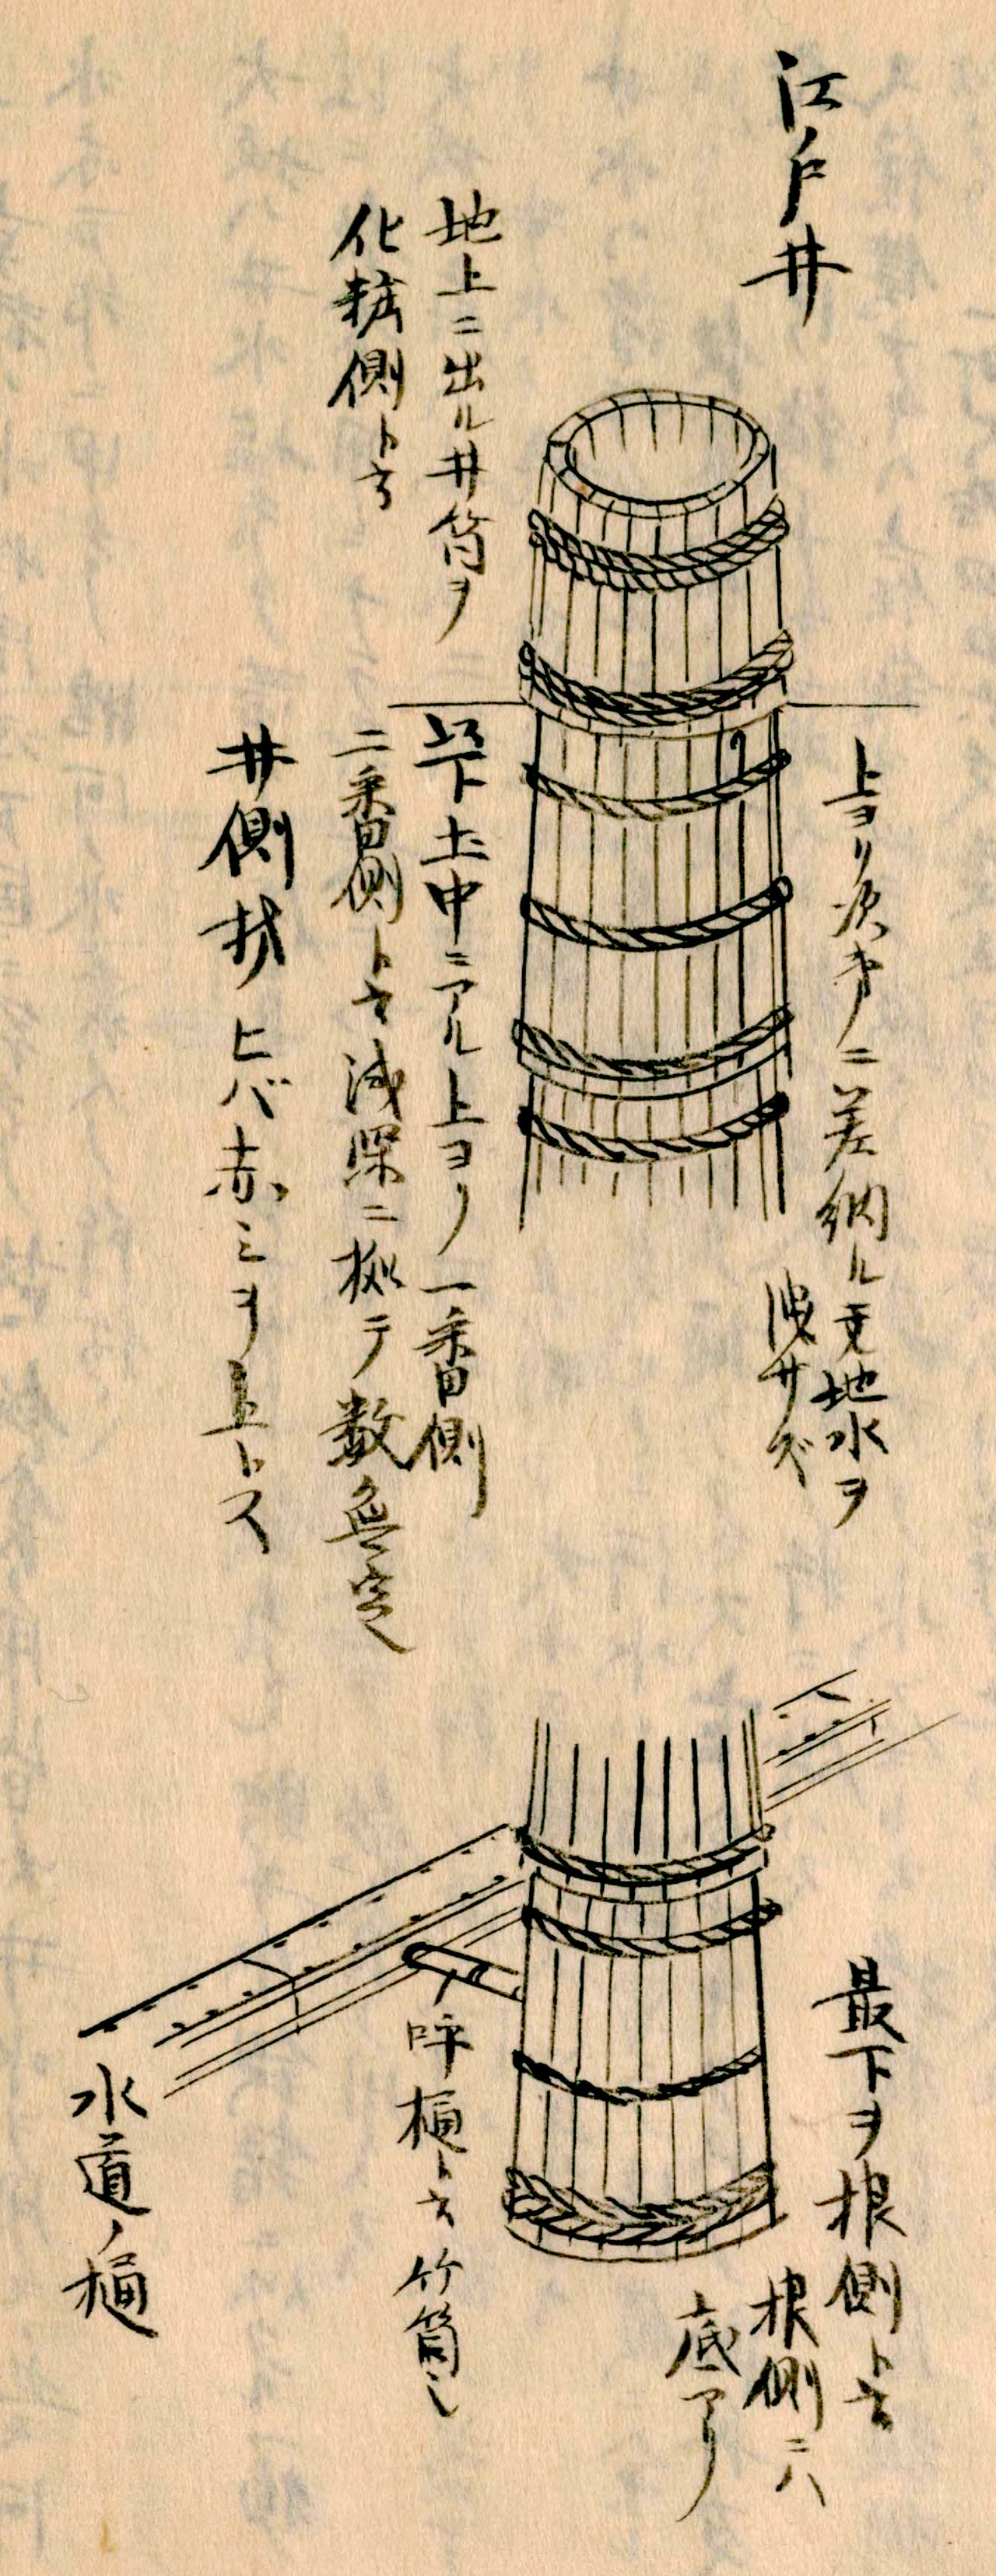 江戸井
地上ニ出ル井筒ヲ
化粧側ト云
上ヨリ次第ニ差納ル 地水ヲ
洩サズ
以下土中ニアル上ヨリ一番側
二番側ト云浅深ニ拠テ数無定
井側材ヒバ赤ミヲ上トス
最下ヲ根側ト云
根側ニハ
底アリ
呼樋ト云竹筒也
水道ノ樋